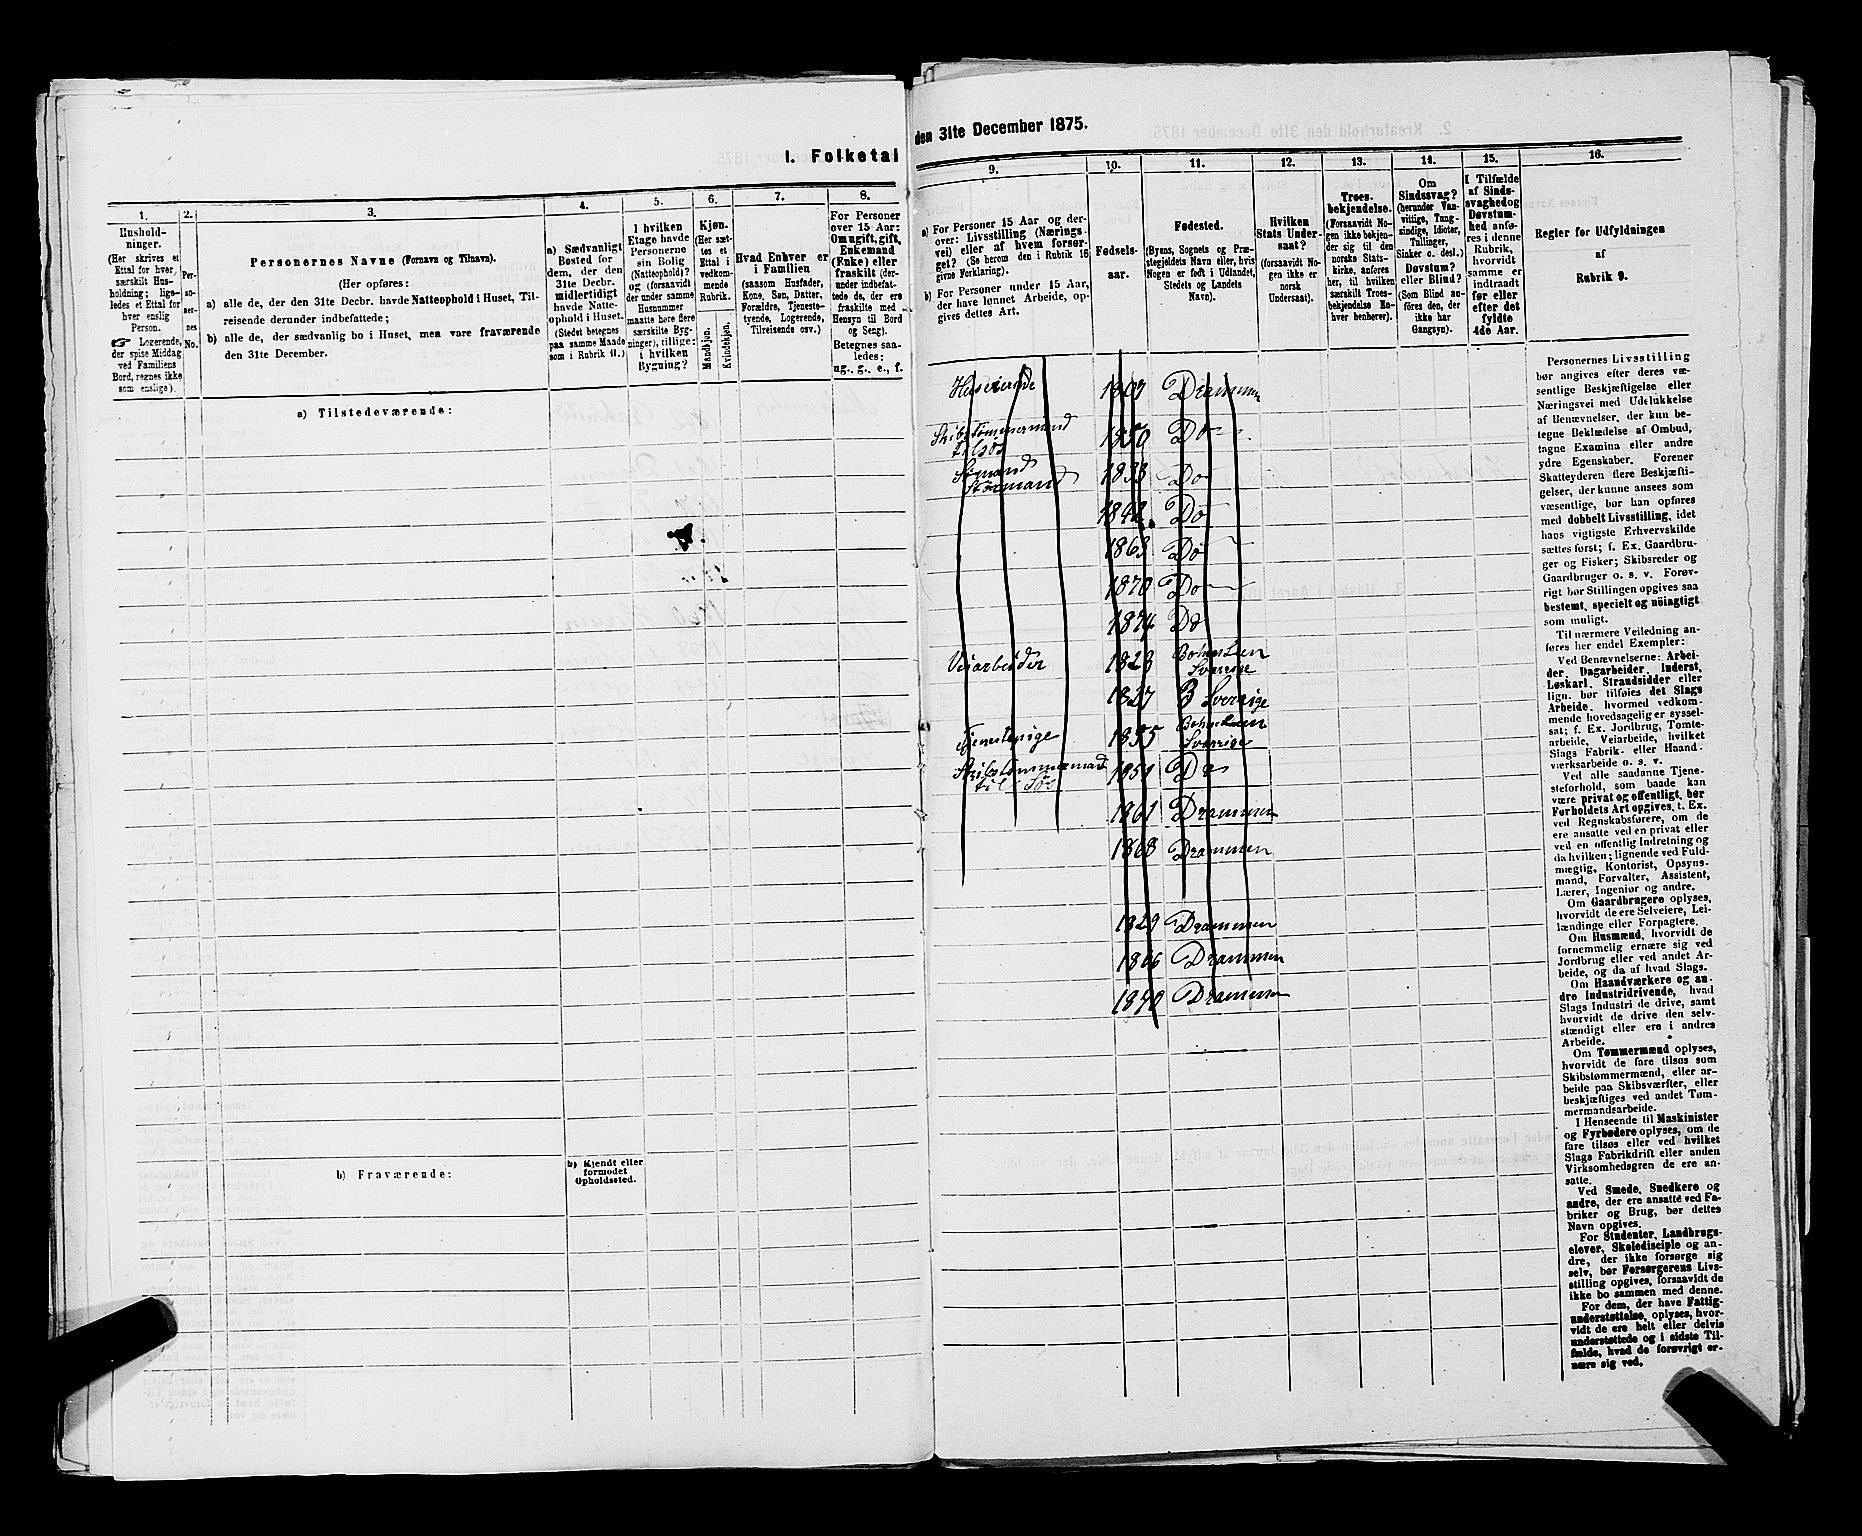 I. Folketal
1.
Husholdninger.
(Her skrives et
Ettal for hver
særskilt Husholdning;
ligeledes et Ettal for
hver enslig
Person.
☞ Logerende,
der spise Middag
ved Familiens
Bord, regnes ikke
som enslige).
2.
Personernes
No.
3.
Personernes Navne (Fornavn og Tilnavn).
(Her opføres:
a) alle de, der den 31te Decbr. havde Natteophold i Huset, Tilreisende derunder indbefattede;
b) alle de, der sædvanlig bo i Huset, men vare fraværende
den 31te December.
4.
a) Sædvanligt
Bosted for
dem, der den
31te Decbr.
midlertidigt
havde Natteophold i Huset.
(Stedet betegnes
paa samme Maade
som i Rubrik 11.)
5.
I hvilken
Etage havde
Personerne
sin Bolig
(Natteophold)?
og (forsaavidt
der under samme
Husnummer
maatte høre flere
særskilte Bygninger), tillige:
i hvilken
Bygning?
6.
Kjøn.
(Her sættes et
Ettal i
vedkommende
Rubrik.
Mandkjøn.
Kvindekjøn.
7.
Hvad Enhver er
i Familien
(saasom Husfader,
Kone, Søn, Datter,
Forældre, Tjenestetyende, Logerende,
Tilreisende osv.)
8.
For Personer
over 15 Aar:
Om ugift, gift,
Enkemand
(Enke) eller
fraskilt (derunder indbefattede de, der ere
fraskilte med
Hensyn til Bord
og Seng).
Betegnes saaledes:
ug., g., e., f.
a) Tilstedeværende:
b) Fraværende:
b) Kjendt eller
formodet
Opholdssted.
den 31te December 1875.
9.
a) For Personer 15 Aar og derover: Livsstilling (Næringsvei) eller af hvem forsørget? (Se herom den i Rubrik 16
givne Forklaring).
b) For Personer under 15 Aar,
der have lønnet Arbeide, opgives dettes Art.
10.
Fødselsaar.
11.
Fødested.
(Byens, Sognets og Præstegjeldets Navn, eller, hvis
Nogen er født i Udlandet,
Stedets og Landets
Navn).
12.
Hvilken
Stats Undersaat?
(forsaavidt Nogen ikke er
norsk
Undersaat).
13.
Troesbekjendelse.
(Forsaavidt Nogen ikke bekjender sig til den
norske Statskirke, anføres
her, til hvilken
særskilt Troesbekjendelse Enhver henhører).
14.
Om
Sindssvag?
(herunder Vanvittige, Tungsindige, Idioter,
Tullinger,
Sinker o. desl.)
Døvstum?
eller Blind?
(Som Blind anføres den, der
ikke har
Gangsyn).
15.
I Tilfælde
af Sindssvaghed og
Døvstumhed anføres i denne
Rubrik,
hvorvidt
samme er
indtraadt
før eller
efter det
fyldte
4de Aar.
16.
Regler for Udfyldningen
af
Rubrik 9.
Huseierinde 1807 Drammen
Skibstømmermand
tilsøs 1850 Do
Sømand
Styrmand 1833 Do
1842 Do
1863 Do
1870 Do
1874 Do
Veiarbeider 1823 Bohuslen
Sverrige
1827 B Sverrige
Tjenestepige 1855 Bohuslen
Sverrige
Skibstømmermand
til Søs 1851 Do
1861 Drammen
1868 Drammen
1829 Drammen
1866 Drammen
1870 Drammen
Personernes Livsstilling
bør angives efter deres væsentlige Beskjæftigelse eller
Næringsvei med Udelukkelse
af Benævnelser, der kun betegne Beklædelse af Ombud,
tagne Examina eller andre
ydre Egenskaber. Forener
Skatteyderen flere Beskjæftigelser, der kunne ansees som
væsentlige, bør han opføres
med dobbelt Livsstilling, idet
hans vigtigste Erhvervskilde
sættes først; f. Ex. Gaardbruger og Fisker; Skibsreder og
Gaardbruger o. s. v. Forøvrigt bør Stillingen opgives saa
bestemt, specielt og nöiagtigt
som muligt.
Til nærmere Veiledning anføres her endel Exempler:
Ved Benævnelserne: Arbeider, Dagarbeider, Inderst,
Løskarl, Strandsidder eller
lign. bør tilføies det Slags
Arbeide, hvormed vedkommende hovedsagelig er sysselsat; f. Ex. Jordbrug, Tomtearbeide, Veiarbeide, hvilket
Slags Fabrik- eller Haandværksarbeide o. s. v.
Ved alle saadanne Tjenesteforhold, som baade kan
være privat og offentligt, bør
Forholdets Art opgives, t. Ex.
ved Regnskabsførere, om de
ere ansatte ved en privat eller
ved en offentlig Indretning og
da hvilken; lignende ved Fuldmægtig, Kontorist, Opsynsmand, Forvalter, Assistent,
Lærer, Ingeniør og andre.
Om Gaardbrugere oplyses,
hvorvidt de ere Selveiere, Leilændinge eller Forpagtere.
Om Husmænd, hvorvidt de
fornemmelig ernære sig ved
Jordbrug eller ved andet Arbeide, og da af hvad Slags.
Om Haandværkere og andre Industridrivende, hvad
Slags Industri de drive, samt
hvorvidt de drive den selvstændigt eller ere i andres
Arbeide.
Om Tømmermænd oplyses,
hvorvidt de fare tilsøs som
Skibstømmermænd, eller arbeide paa Skibsværfter, eller
beskjæftiges ved andet Tømmermandsarbeide.
I Henseende til Maskinister
og Fyrbødere oplyses, om de
fare tilsøs eller ved hvilket
Slags Fabrikdrift eller anden
Virksomhedsgren de ere ansatte.
Ved Smede, Snedkere og
andre, der ere ansatte ved Fabriker og Brug, bør dettes
Navn opgives.
For Studenter, Landbrugselever, Skoledisciple og andre, der ikke forsørge sig
selv, bør Forsørgerens Livsstilling opgives, forsaavidt de
ikke bo sammen med denne.
For dem, der have Fattigunderstøttelse, oplyses, hvorvidt de ere helt eller delvis
understøttede og i sidste Tilfælde, hvad de forøvrigt ernære sig ved.